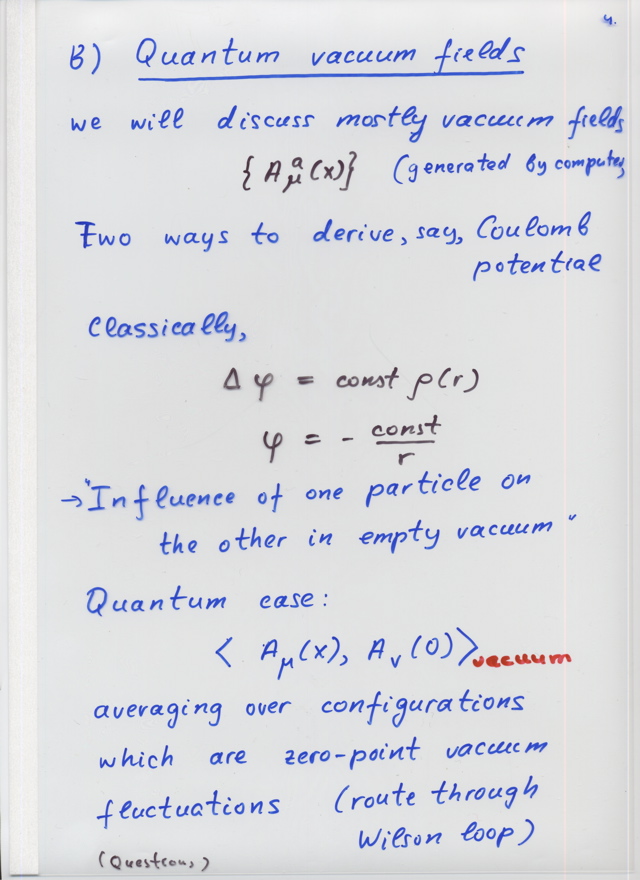 4.
B) Quantum vacuum fields
we will discuss mostly vacuum fields
{A^a_μ(x)} (generated by computer)
Two ways to derive, say, Coulomb
potential
Classically,
Δφ = const ρ(r)
φ = - const/r
→ "Influence of one particle on
the other in empty vacuum"
Quantum case:
< A_μ(x), A_ν(0) >_vacuum
averaging over configurations
which are zero-point vacuum
fluctuations (route through
Wilson loop)
(Questions)